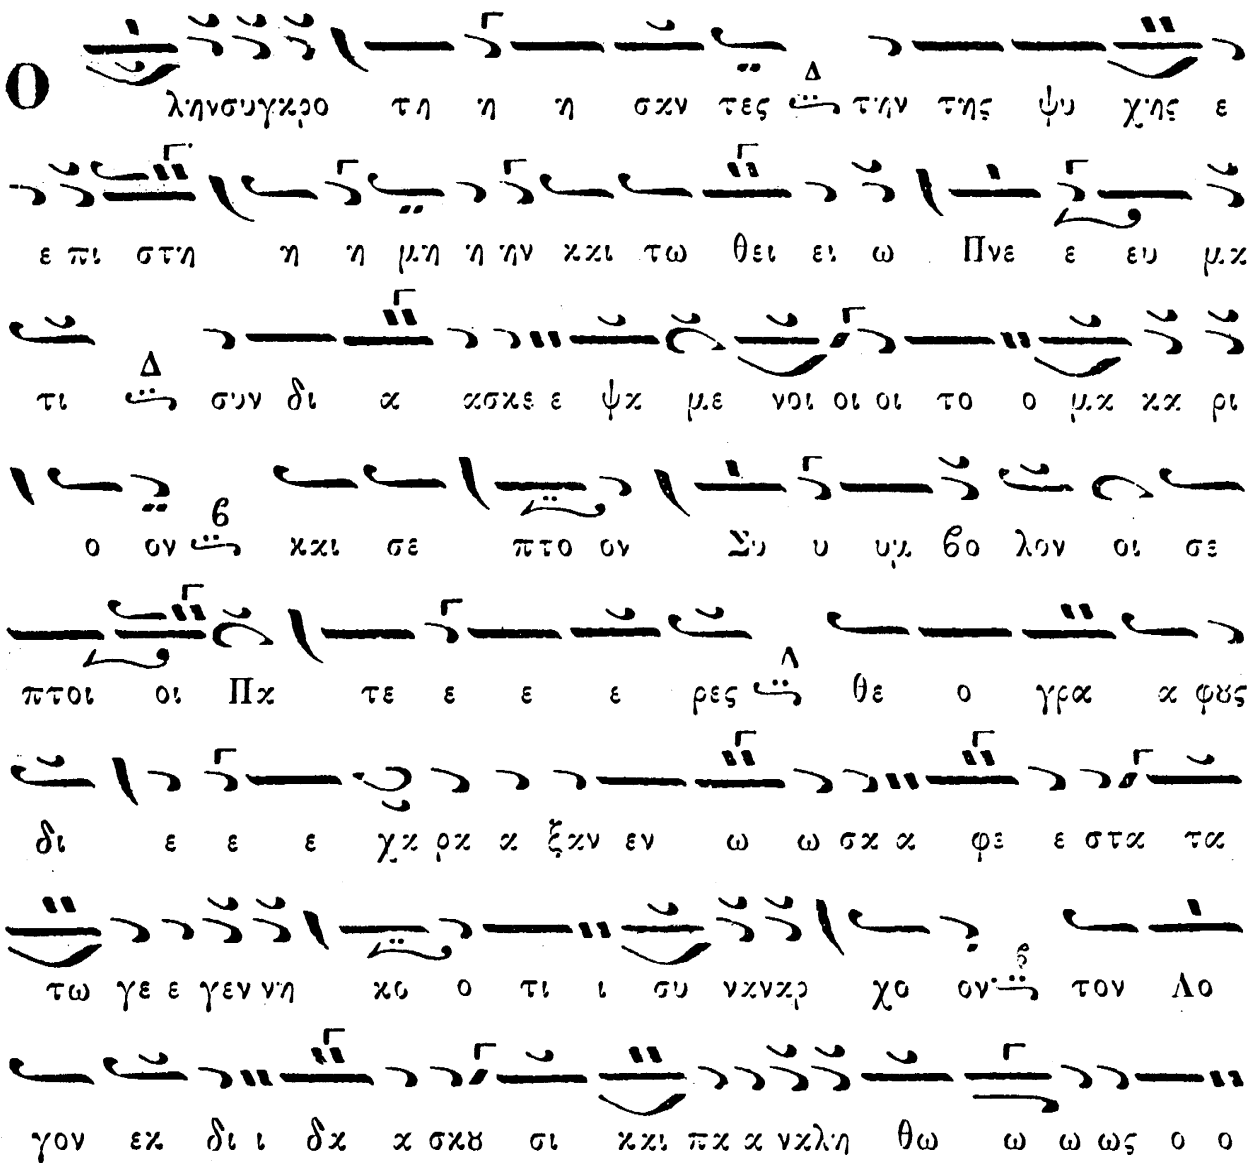 Ο ληνσυγκρο τη η η σαν τες Δ την της ψυ χης ε
ε πι στη η η μη η ην και τω θει ει ω Πνε ε ευ μα
τι Δ συν δι α ασκε ε ψα με νοι οι οι το ο μα κα ρι
ο ον ϐ και σε πτο ον Συ υ υμ ϐο λον οι σε
πτοι οι Πα τε ε ε ε ρες Λ θε ο γρα α φȣς
δι ε ε ε χα ρα α ξαν εν ω ω σα α φε ε στα τα
τω γε ε γεν νη κο ο τι ι συ ναναρ χο ον ϐ τον Λο
γον εκ δι ι δα α σκȣ σι και πα α ναλη θω ω ω ως ο ο